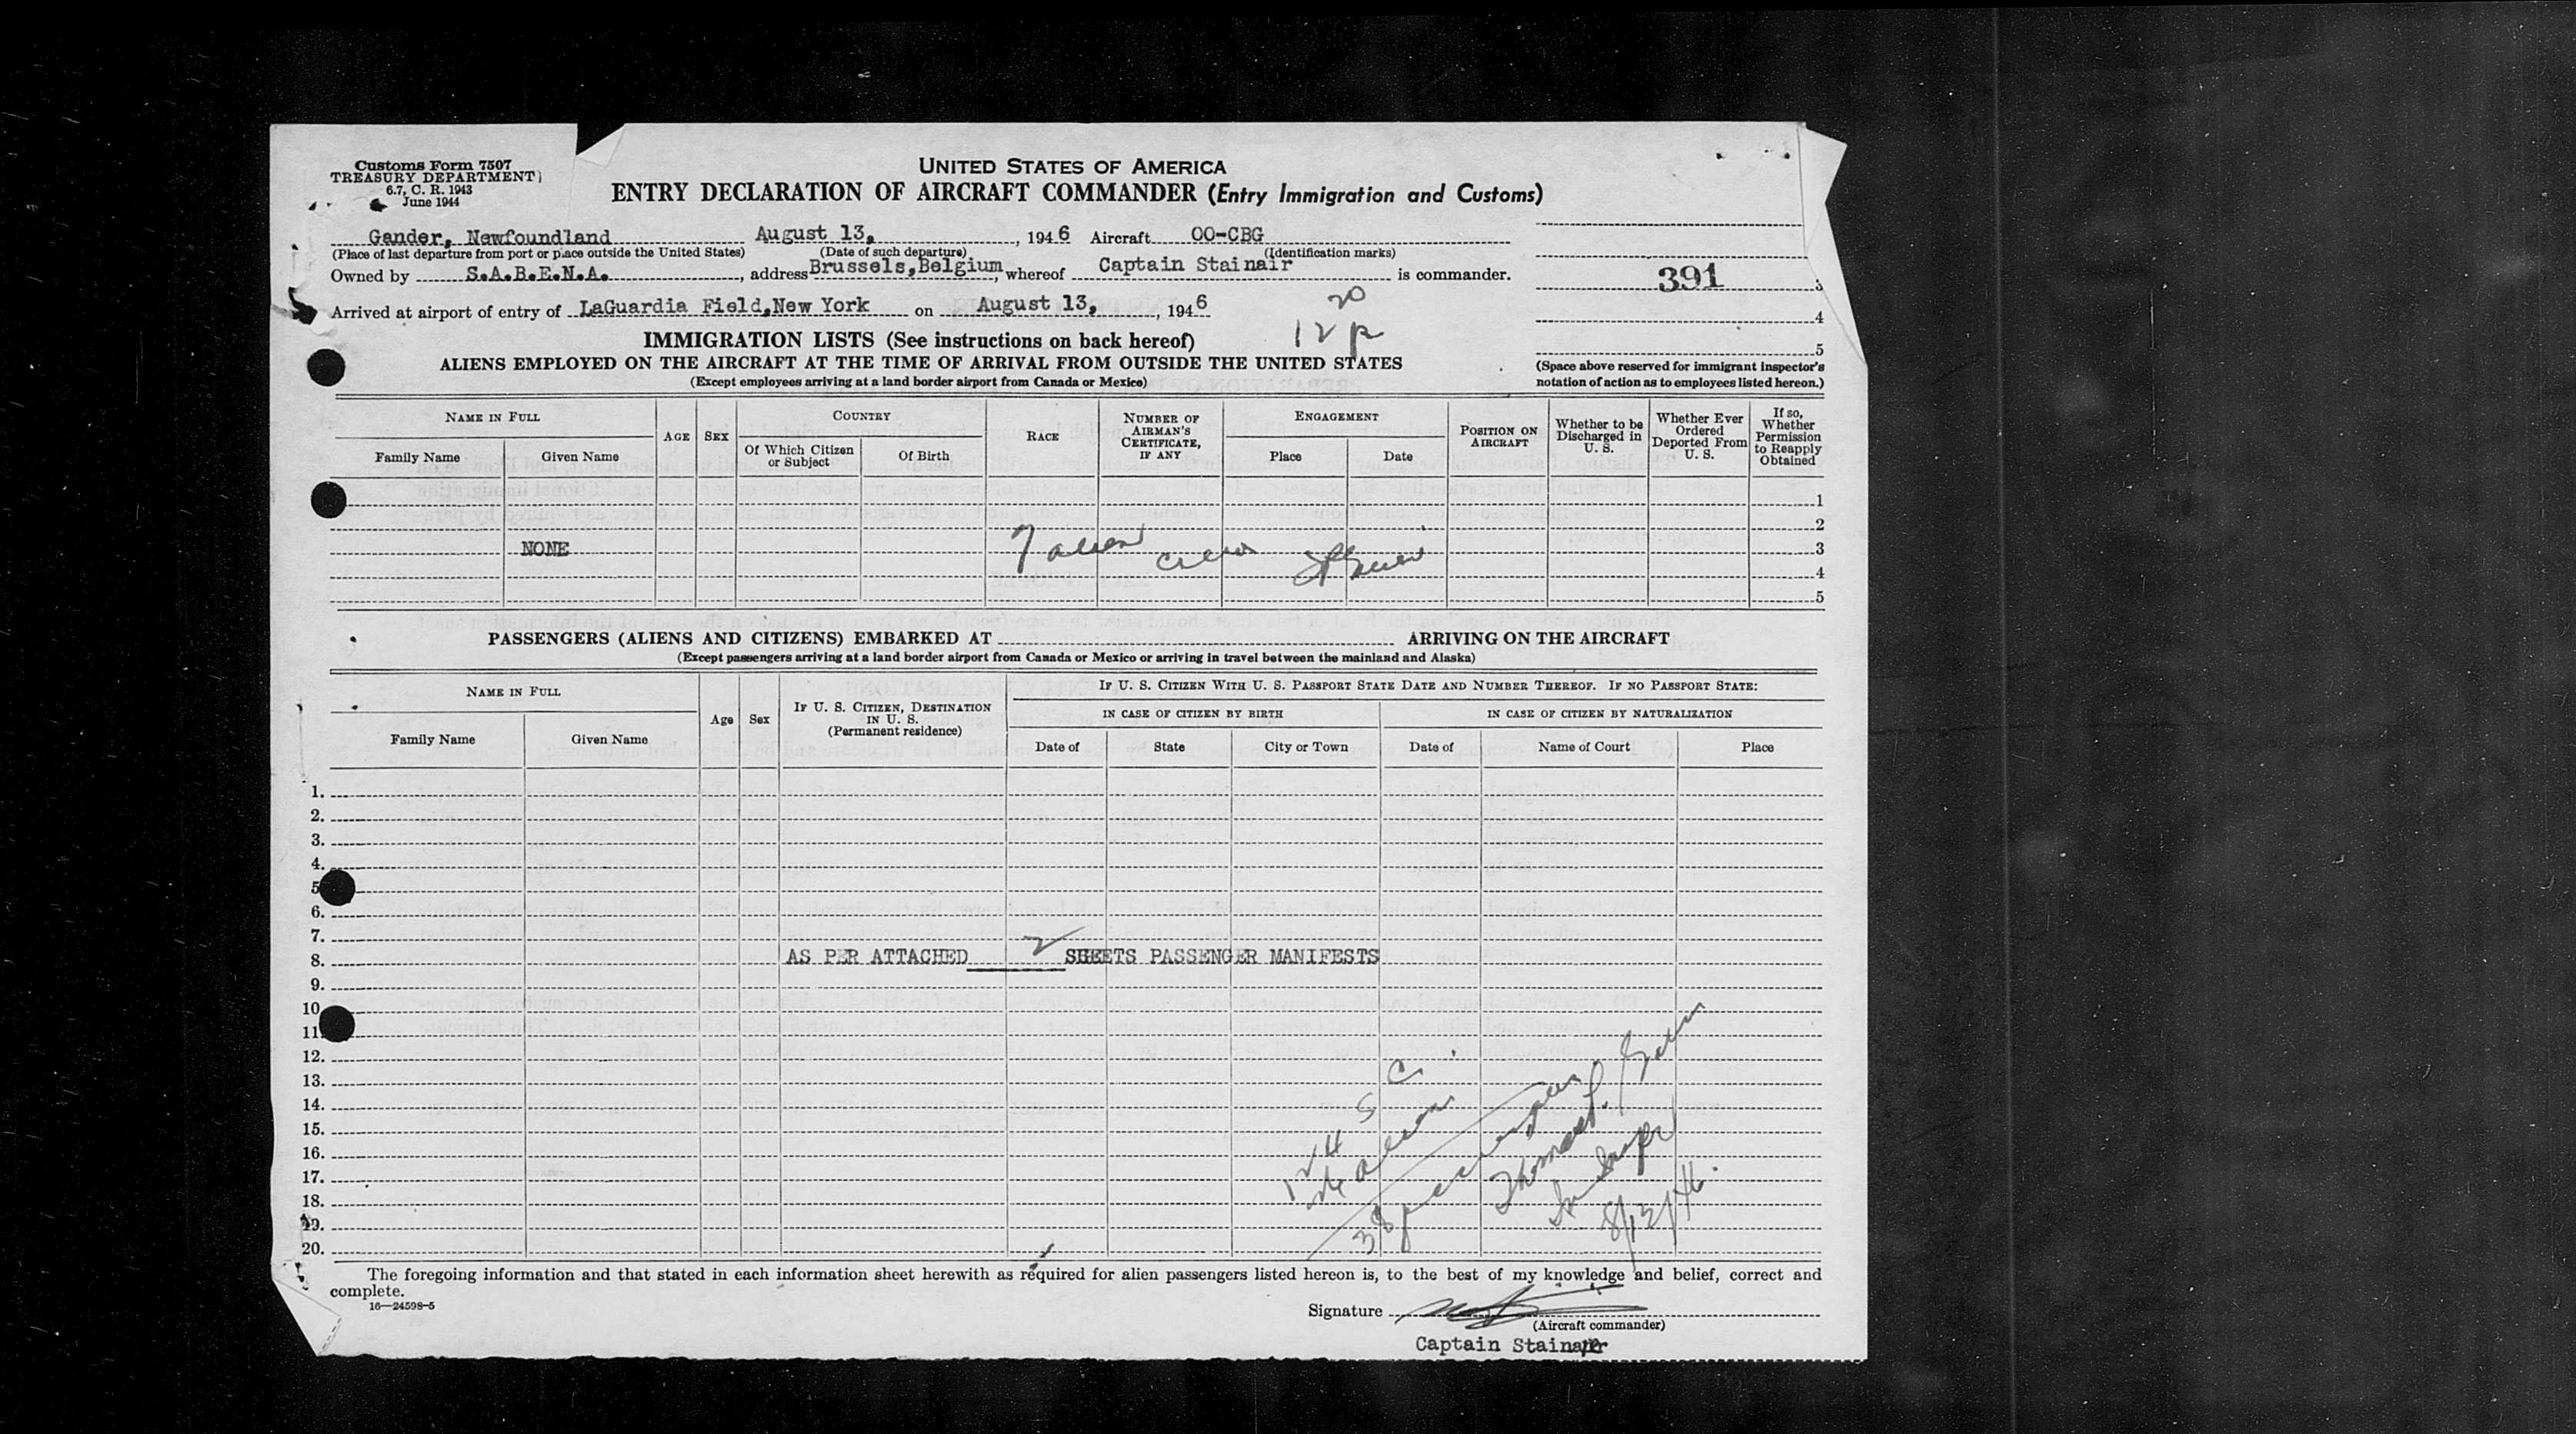 Customs Form 7507
TREASURY DEPARTMENT
6.7, C. R. 1943
June 1944
UNITED STATES OF AMERICA
ENTRY DECLARATION OF AIRCRAFT COMMANDER (Entry Immigration and Customs)
Gander, Newfoundland August 13, , 1946 Aircraft OO-CBG
(Place of last departure from port or place outside the United States) (Date of such departure) (Identification marks)
Owned by S.A.B.E.N.A. , address Brussels,Belgium, whereof Captain Stainair is commander.
391
3
Arrived at airport of entry of LaGuardia Field,New York on August 13, , 1946
20
12 p
4
5
IMMIGRATION LISTS (See instructions on back hereof)
ALIENS EMPLOYED ON THE AIRCRAFT AT THE TIME OF ARRIVAL FROM OUTSIDE THE UNITED STATES
(Except employees arriving at a land border airport from Canada or Mexico)
(Space above reserved for immigrant inspector's
notation of action as to employees listed hereon.)
NAME IN FULL
Family Name Given Name
AGE
SEX
COUNTRY
Of Which Citizen or Subject
Of Birth
RACE
NUMBER OF AIRMAN'S CERTIFICATE, IF ANY
ENGAGEMENT
Place Date
POSITION ON AIRCRAFT
Whether to be Discharged in U. S.
Whether Ever Ordered Deported From U. S.
If so, Whether Permission to Reapply Obtained
1
2
NONE 7 alien crew 3
4
5
PASSENGERS (ALIENS AND CITIZENS) EMBARKED AT ARRIVING ON THE AIRCRAFT
(Except passengers arriving at a land border airport from Canada or Mexico or arriving in travel between the mainland and Alaska)
NAME IN FULL
Family Name Given Name
Age
Sex
IF U. S. CITIZEN, DESTINATION IN U. S.
(Permanent residence)
IF U. S. CITIZEN WITH U. S. PASSPORT STATE DATE AND NUMBER THEREOF. IF NO PASSPORT STATE:
IN CASE OF CITIZEN BY BIRTH
Date of State City or Town
IN CASE OF CITIZEN BY NATURALIZATION
Date of Name of Court Place
1.
2.
3.
4.
5
6.
7.
8. AS PER ATTACHED 2 SHEETS PASSENGER MANIFESTS
9.
10
11
12.
13.
14.
15.
16.
17.
18.
19.
20.
S C
aliens
38 passengers
Thomas
8/12/46.
The foregoing information and that stated in each information sheet herewith as required for alien passengers listed hereon is, to the best of my knowledge and belief, correct and
complete.
16—24598-5
Signature
(Aircraft commander)
Captain Stainair